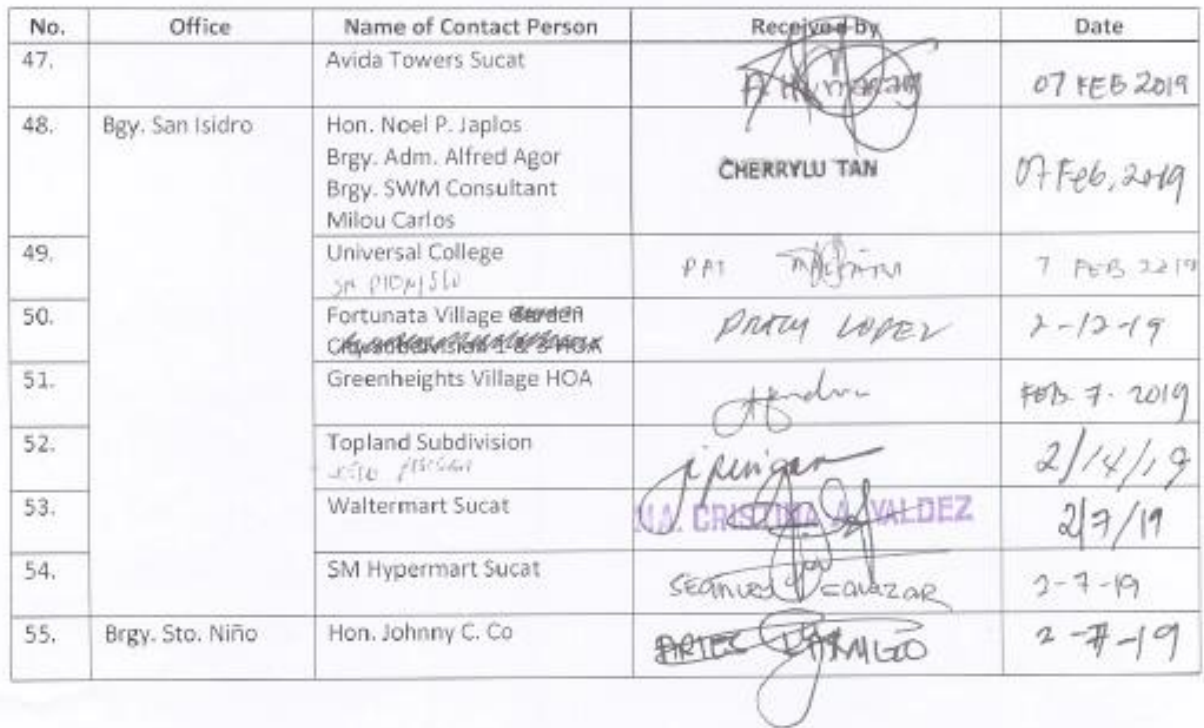 No. Office Name of Contact Person Received by Date
47. Avida Towers Sucat 07 FEB 2019
48. Bgy. San Isidro Hon. Noel P. Japlos
Brgy. Adm. Alfred Agor CHERRYLU TAN 07 Feb, 2019
Brgy. SWM Consultant
Milou Carlos
49. Universal College PAT 7 FEB 2219
50. Fortunata Village Garden LOPEZ 2-12-19
City Subdivision 1 & 3 HOA
51. Greenheights Village HOA FEB. 7. 2019
52. Topland Subdivision 2/14/19
53. Waltermart Sucat MA. CRISTINA A. VALDEZ 2/7/19
54. SM Hypermart Sucat 2-7-19
55. Brgy. Sto. Niño Hon. Johnny C. Co 2-7-19